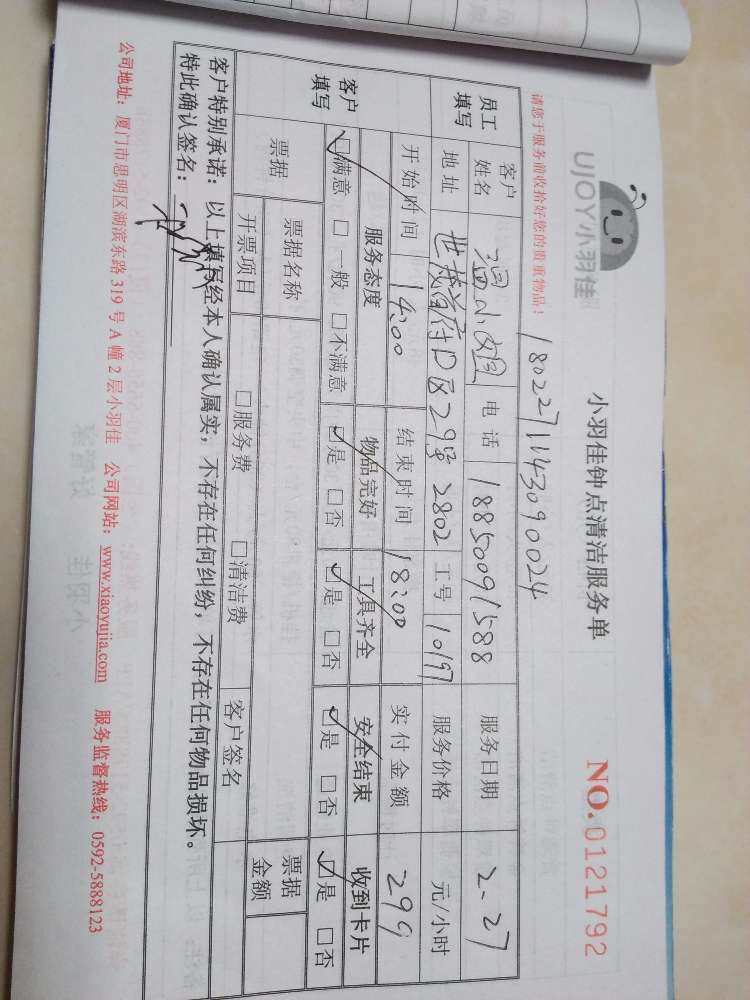 UJOY小羽佳
小羽佳钟点清洁服务单
NO.0121792
请您于服务前收拾好您的贵重物品!
1802271143090024
员工填写
客户姓名 温小姐 电话 18850091588 服务日期 2、27
地址 世茂首府D区29号2802 工号 10197 服务价格 元/小时
开始时间 14:00 结束时间 18:00 实付金额 299
客户填写
服务态度 物品完好 工具齐全 安全结束 收到卡片
☑满意 □一般 □不满意 ☑是 □否 ☑是 □否 ☑是 □否 ☑是 □否
票据 票据名称 票据金额
开票项目 □服务费 □清洁费 客户签名
客户特别承诺:以上填写经本人确认属实,不存在任何纠纷,不存在任何物品损坏。
特此确认签名:
公司地址:厦门市思明区湖滨东路319号A幢2层小羽佳 公司网站:www.xiaoyujia.com 服务监督热线:0592-5888123